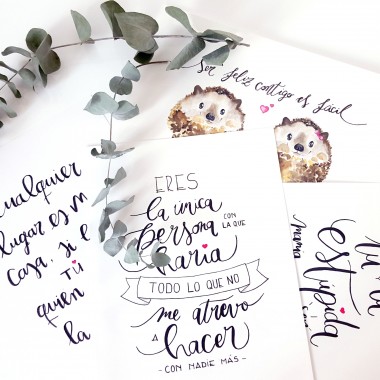 Ser feliz contigo es fácil
cualquier
lugar es m
casa, si e
tú
quien
la
ERES
la única
persona CON LA QUE
haría
TODO LO QUE NO
me atrevo
A hacer
- CON NADIE MÁS -
estúpida
mamá